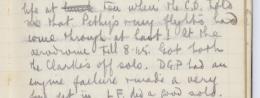 life at Tea when the C.O. told
me that Pethy's many flights had
come through at last! At the
aerodrome till 8.45. Got both
the Clarkes off solo. D.G.P. had an
engine failure & made a very
set in L.F. did a good solo.